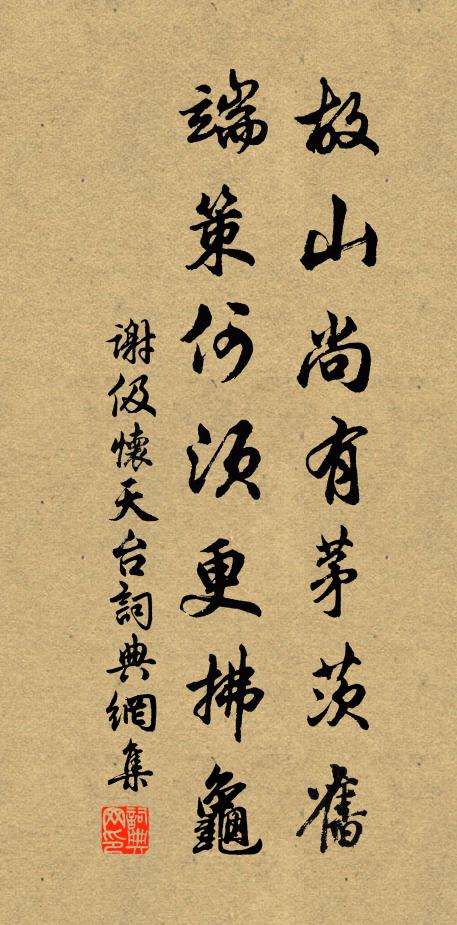 故山尚有茅茨舊
端策何須更拂龜
謝伋懷天台詞典網集
詞典网印